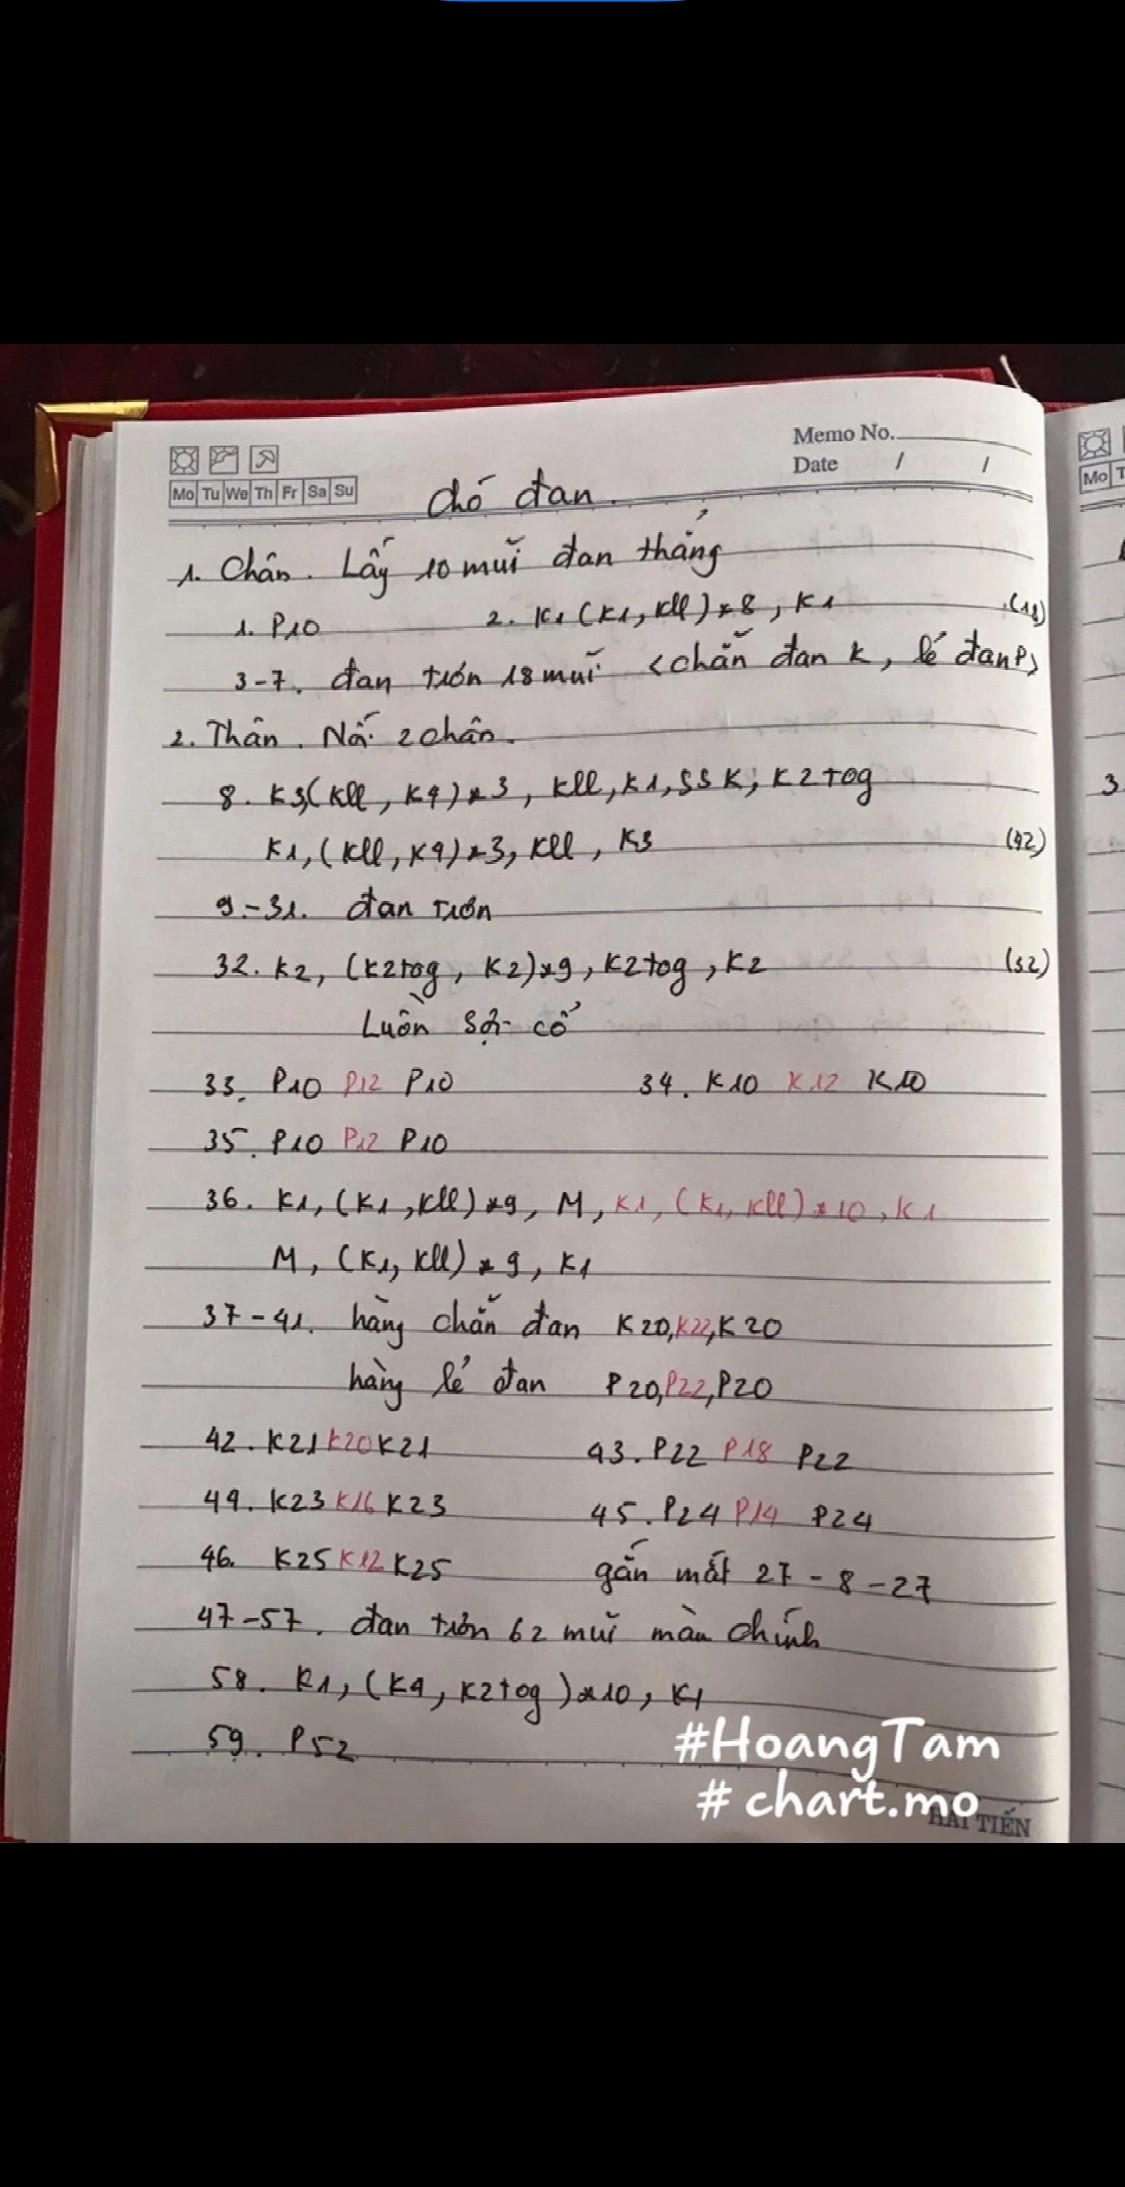 Memo No.
Date / /
Mo Tu We Th Fr Sa Su
Chó đan.
1. Chân. Lấy 10 mũi đan thẳng
1. P10 2. K1 (K1, Kll) * 8, K1 (18)
3-7. đan trơn 18 mũi (chẵn đan K, lẻ đan P)
2. Thân. Nối 2 chân.
8. K3, (Kll, K4) * 3, Kll, K1, SSK, K2tog
K1, (Kll, K4) * 3, Kll, K3 (42)
9-31. đan trơn
32. K2, (K2tog, K2) * 9, K2tog, K2 (32)
Luồn sợi cổ
33. P10 P12 P10 34. K10 K12 K10
35. P10 P12 P10
36. K1, (K1, Kll) * 9, M, K1, (K1, Kll) * 10, K1
M, (K1, Kll) * 9, K1
37-41. hàng chẵn đan K20, K22, K20
hàng lẻ đan P20, P22, P20
42. K21 K20 K21 43. P22 P18 P22
44. K23 K16 K23 45. P24 P14 P24
46. K25 K12 K25 gắn mắt 27-8-27
47-57. đan trơn 62 mũi màu chính
58. K1, (K4, K2tog) * 10, K1
59. P52
#HoangTam
# chart.mo
HẢI TIẾN
Mo
3